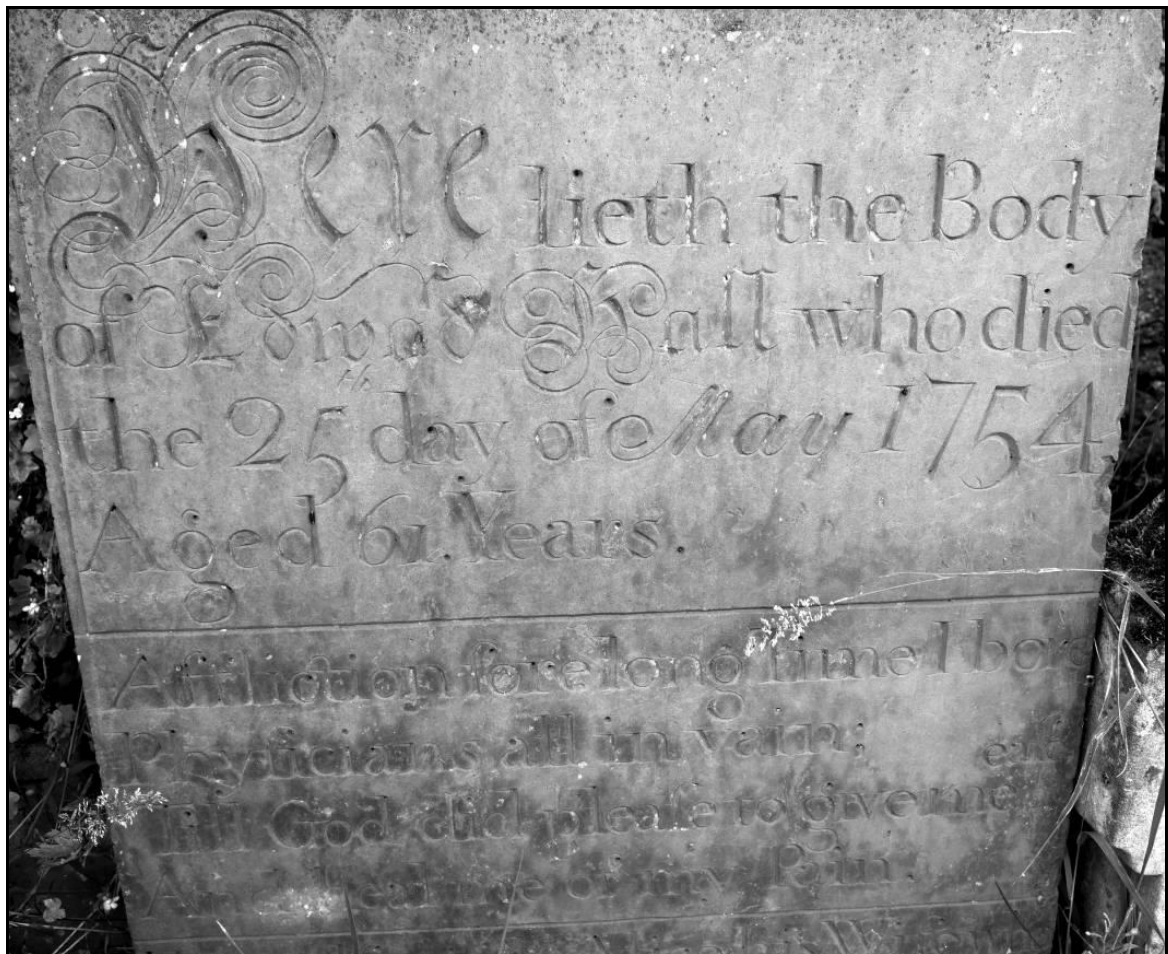 Here lieth the Body,
of Edward Wall who died
the 25th day of May 1754,
Aged 61. Years.
Affliction ſore long time I bore
Phyſicians all in vain; eaſ
Till God did pleaſe to give me
of my Pain.